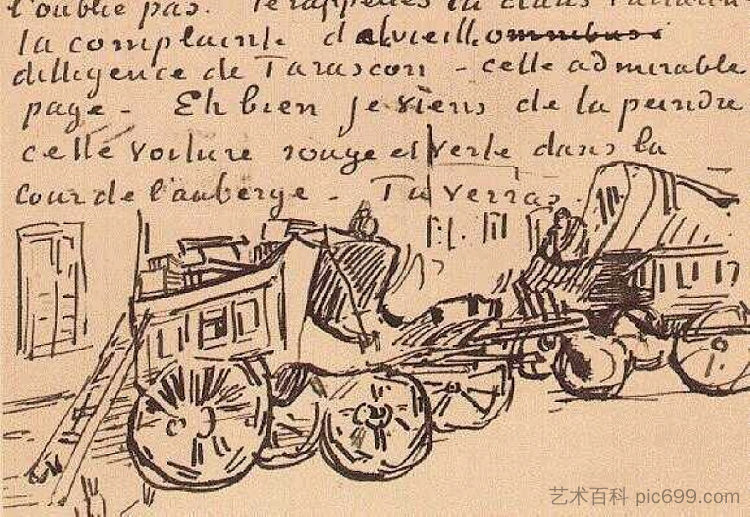 l'oublie pas. Te rappelles tu dans
la complainte de la vieille omnibus
diligence de Tarascon - cette admirable
page. Eh bien je viens de la peindre
cette voiture rouge et verte dans la
cour de l'auberge. Tu verras.
艺术百科 pic699.com